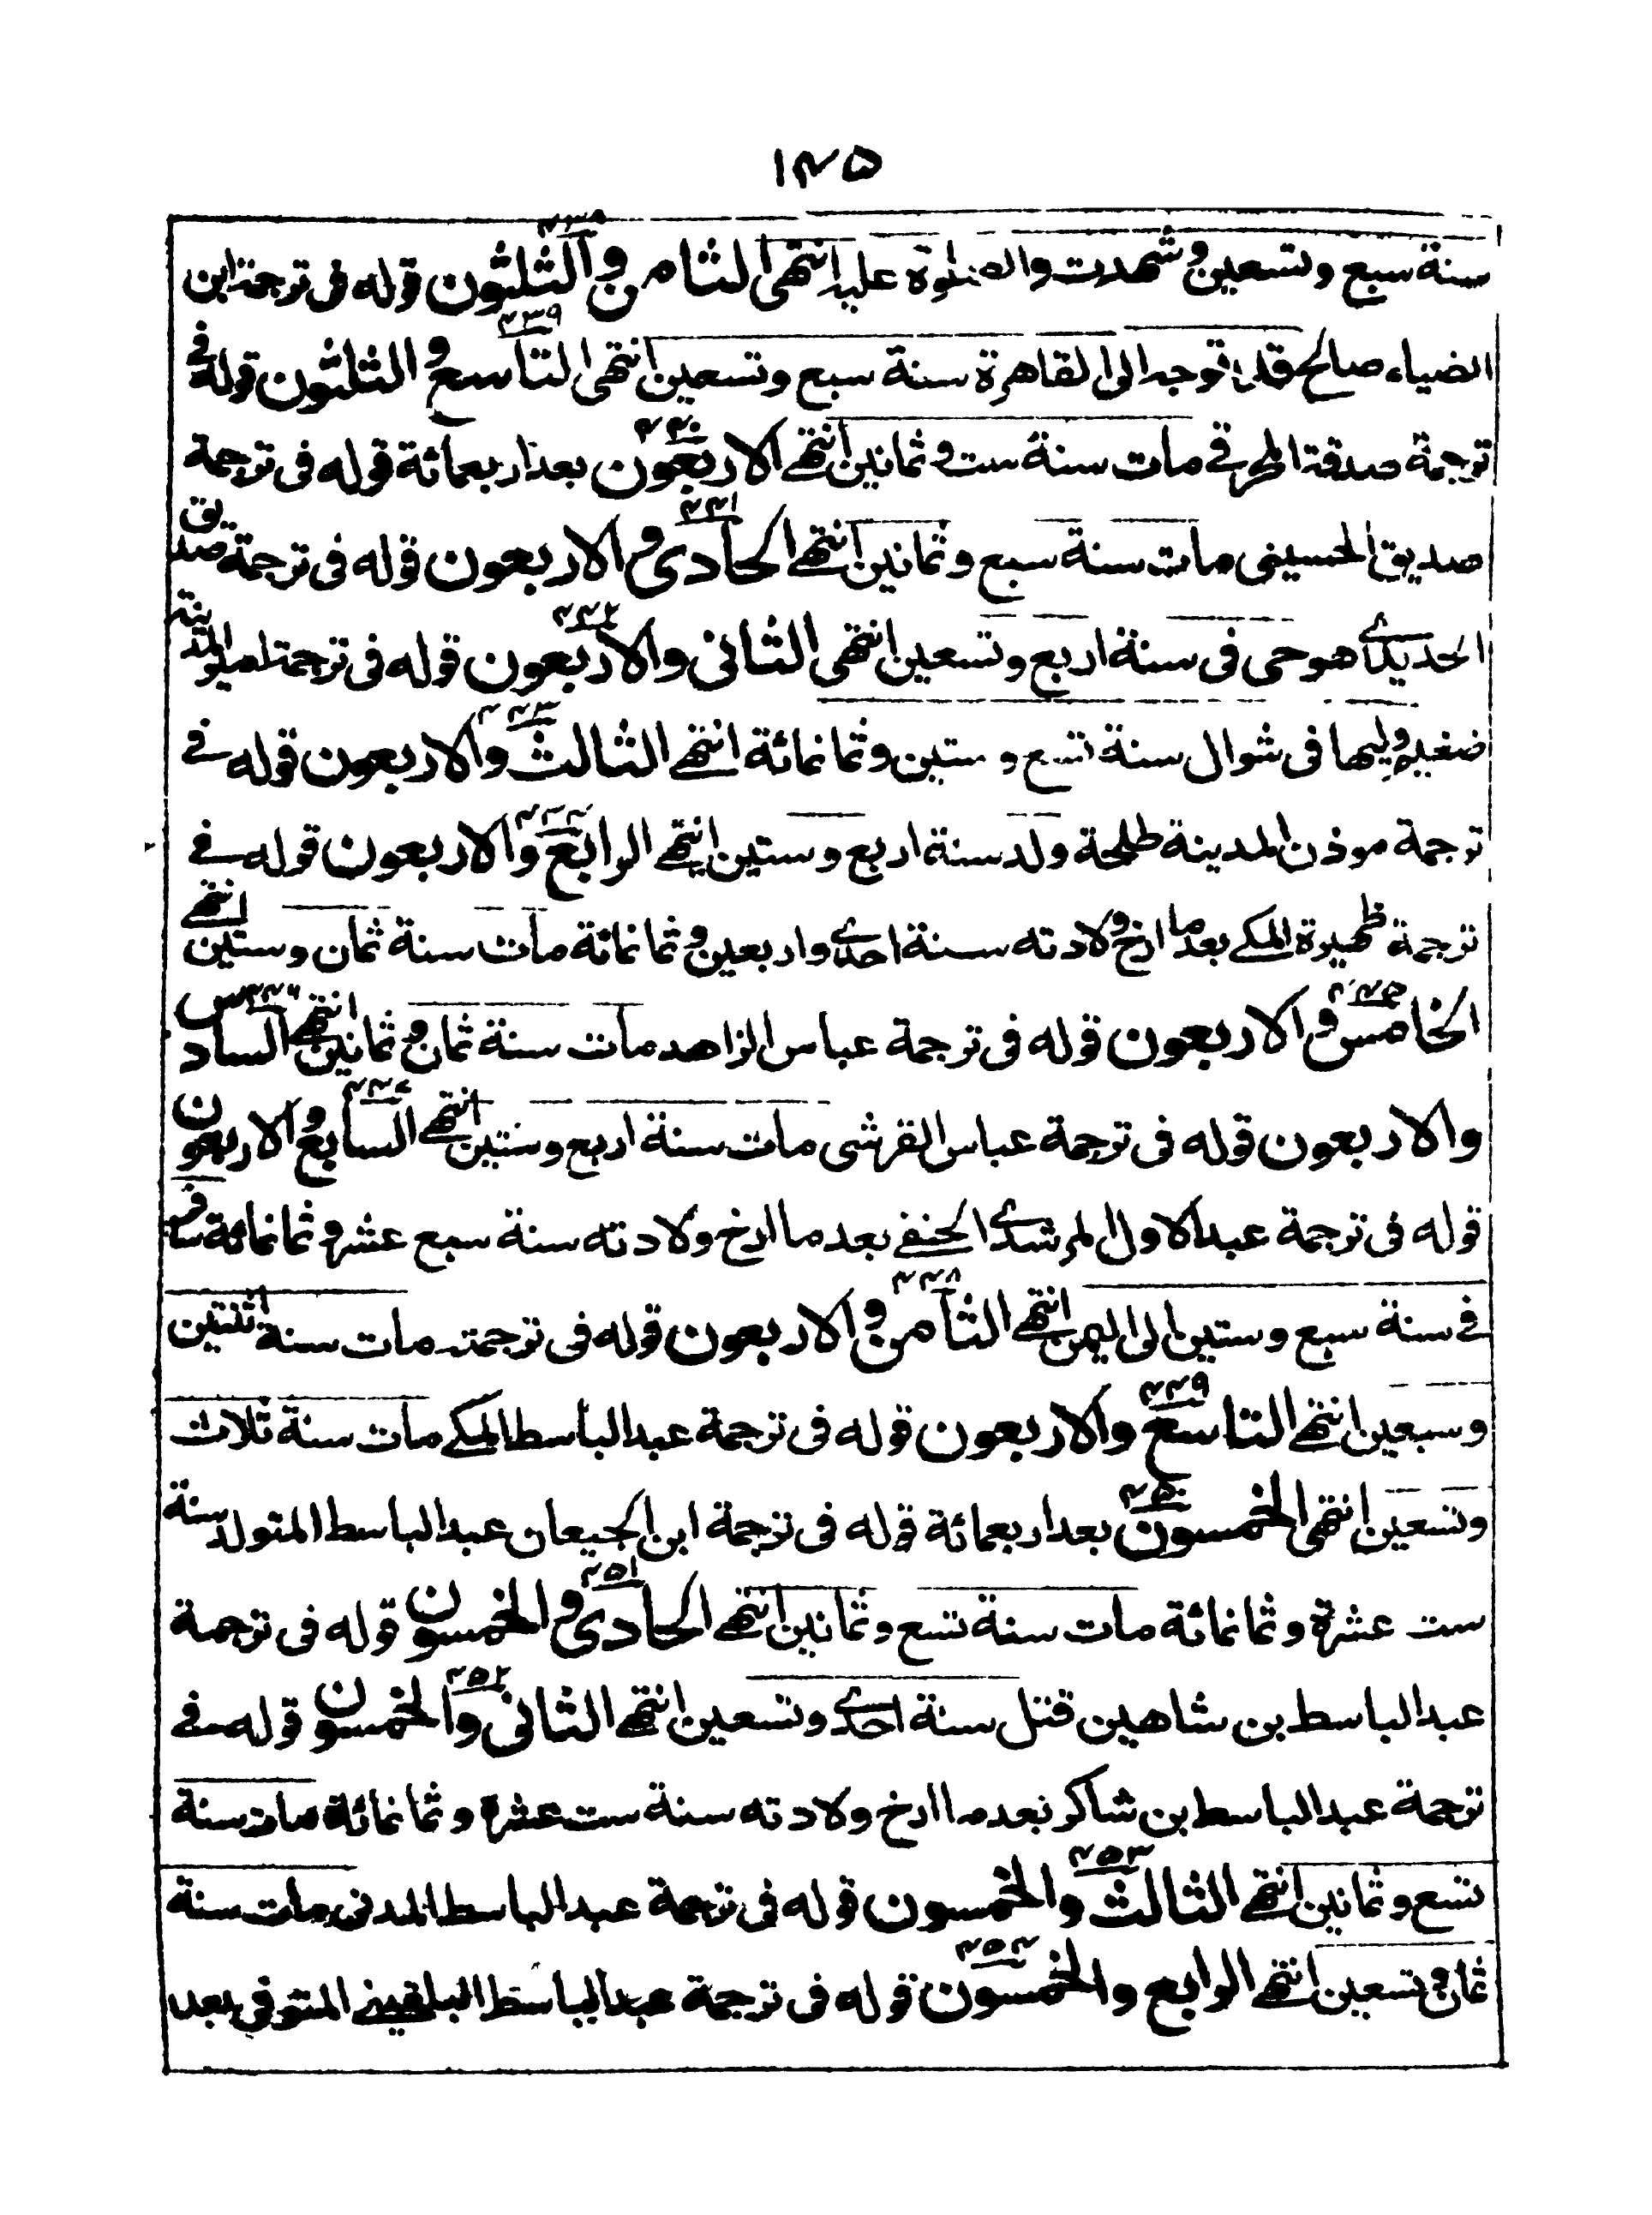 ١٤٥
٤٣٨
سنة سبع وتسعين وشهدت والصلوة عليه انتهى الثامن والثلثون قوله فى ترجمة ابن
٤٣٩
الضياء صالح قدا توجه الى القاهرة سنة سبع وتسعين انتهى التاسع والثلثون قوله فى
٤٤٠
ترجمة صدقة المحرقے مات سنة ست وثمانين انتهے الاربعون بعد اربعمائة قوله فى ترجمة
٤٤١
صديق الحسينى مات سنة سبع وثمانين انتهے الحادى والاربعون قوله فى ترجمة صديق
٤٤٢
الحديدے هو حى فى سنة اربع وتسعين انتهى الثانى والاربعون قوله فى ترجمة امير المدينة
٤٤٣
ضغيم وليها فى شوال سنة تسع وستين وثمانمائة انتهے الثالث والاربعون قوله فے
٤٤٤
ترجمة موذن المدينة طلحة ولد سنة اربع وستين انتهے الرابع والاربعون قوله فے
ترجمة ظهيرة المكے بعد ما ارخ ولادته سنة احدے واربعين وثمانمائة مات سنة ثمان وستين انتهے
٤٤٥ ٤٤٦
الخامس والاربعون قوله فى ترجمة عباس الزاهد مات سنة ثمان وثمانين انتهے السادس
٤٤٧
والاربعون قوله فى ترجمة عباس القرشى مات سنة اربع وستين انتهے السابع والاربعون
قوله فى ترجمة عبد الاول المرشدے الحنفے بعد ما ارخ ولادته سنة سبع عشر وثمانمائة سافر
٤٤٨
فے سنة سبع وستين الى اليمن انتهے الثامن والاربعون قوله فى ترجمته مات سنة اثنتين
٤٤٩
وسبعين انتهے التاسع والاربعون قوله فى ترجمة عبد الباسط المكے مات سنة ثلاث
٤٥٠
وتسعين انتهى الخمسون بعد اربعمائة قوله فى ترجمة ابن الجيعان عبد الباسط المتولد سنة
٤٥١
ست عشرة وثمانمائة مات سنة تسع وثمانين انتهے الحادى والخمسون قوله فى ترجمة
٤٥٢
عبد الباسط بن شاهين قتل سنة احدے وتسعين انتهے الثانى والخمسون قوله فے
ترجمة عبد الباسط بن شاكر بعد ما ارخ ولادته سنة ست عشرة وثمانمائة مات سنة
٤٥٣
تسع وثمانين انتهے الثالث والخمسون قوله فى ترجمة عبد الباسط المدنى مات سنة
٤٥٤
ثمان وتسعين انتهے الرابع والخمسون قوله فى ترجمة عبد الباسط البلقينے المتوفى بعد